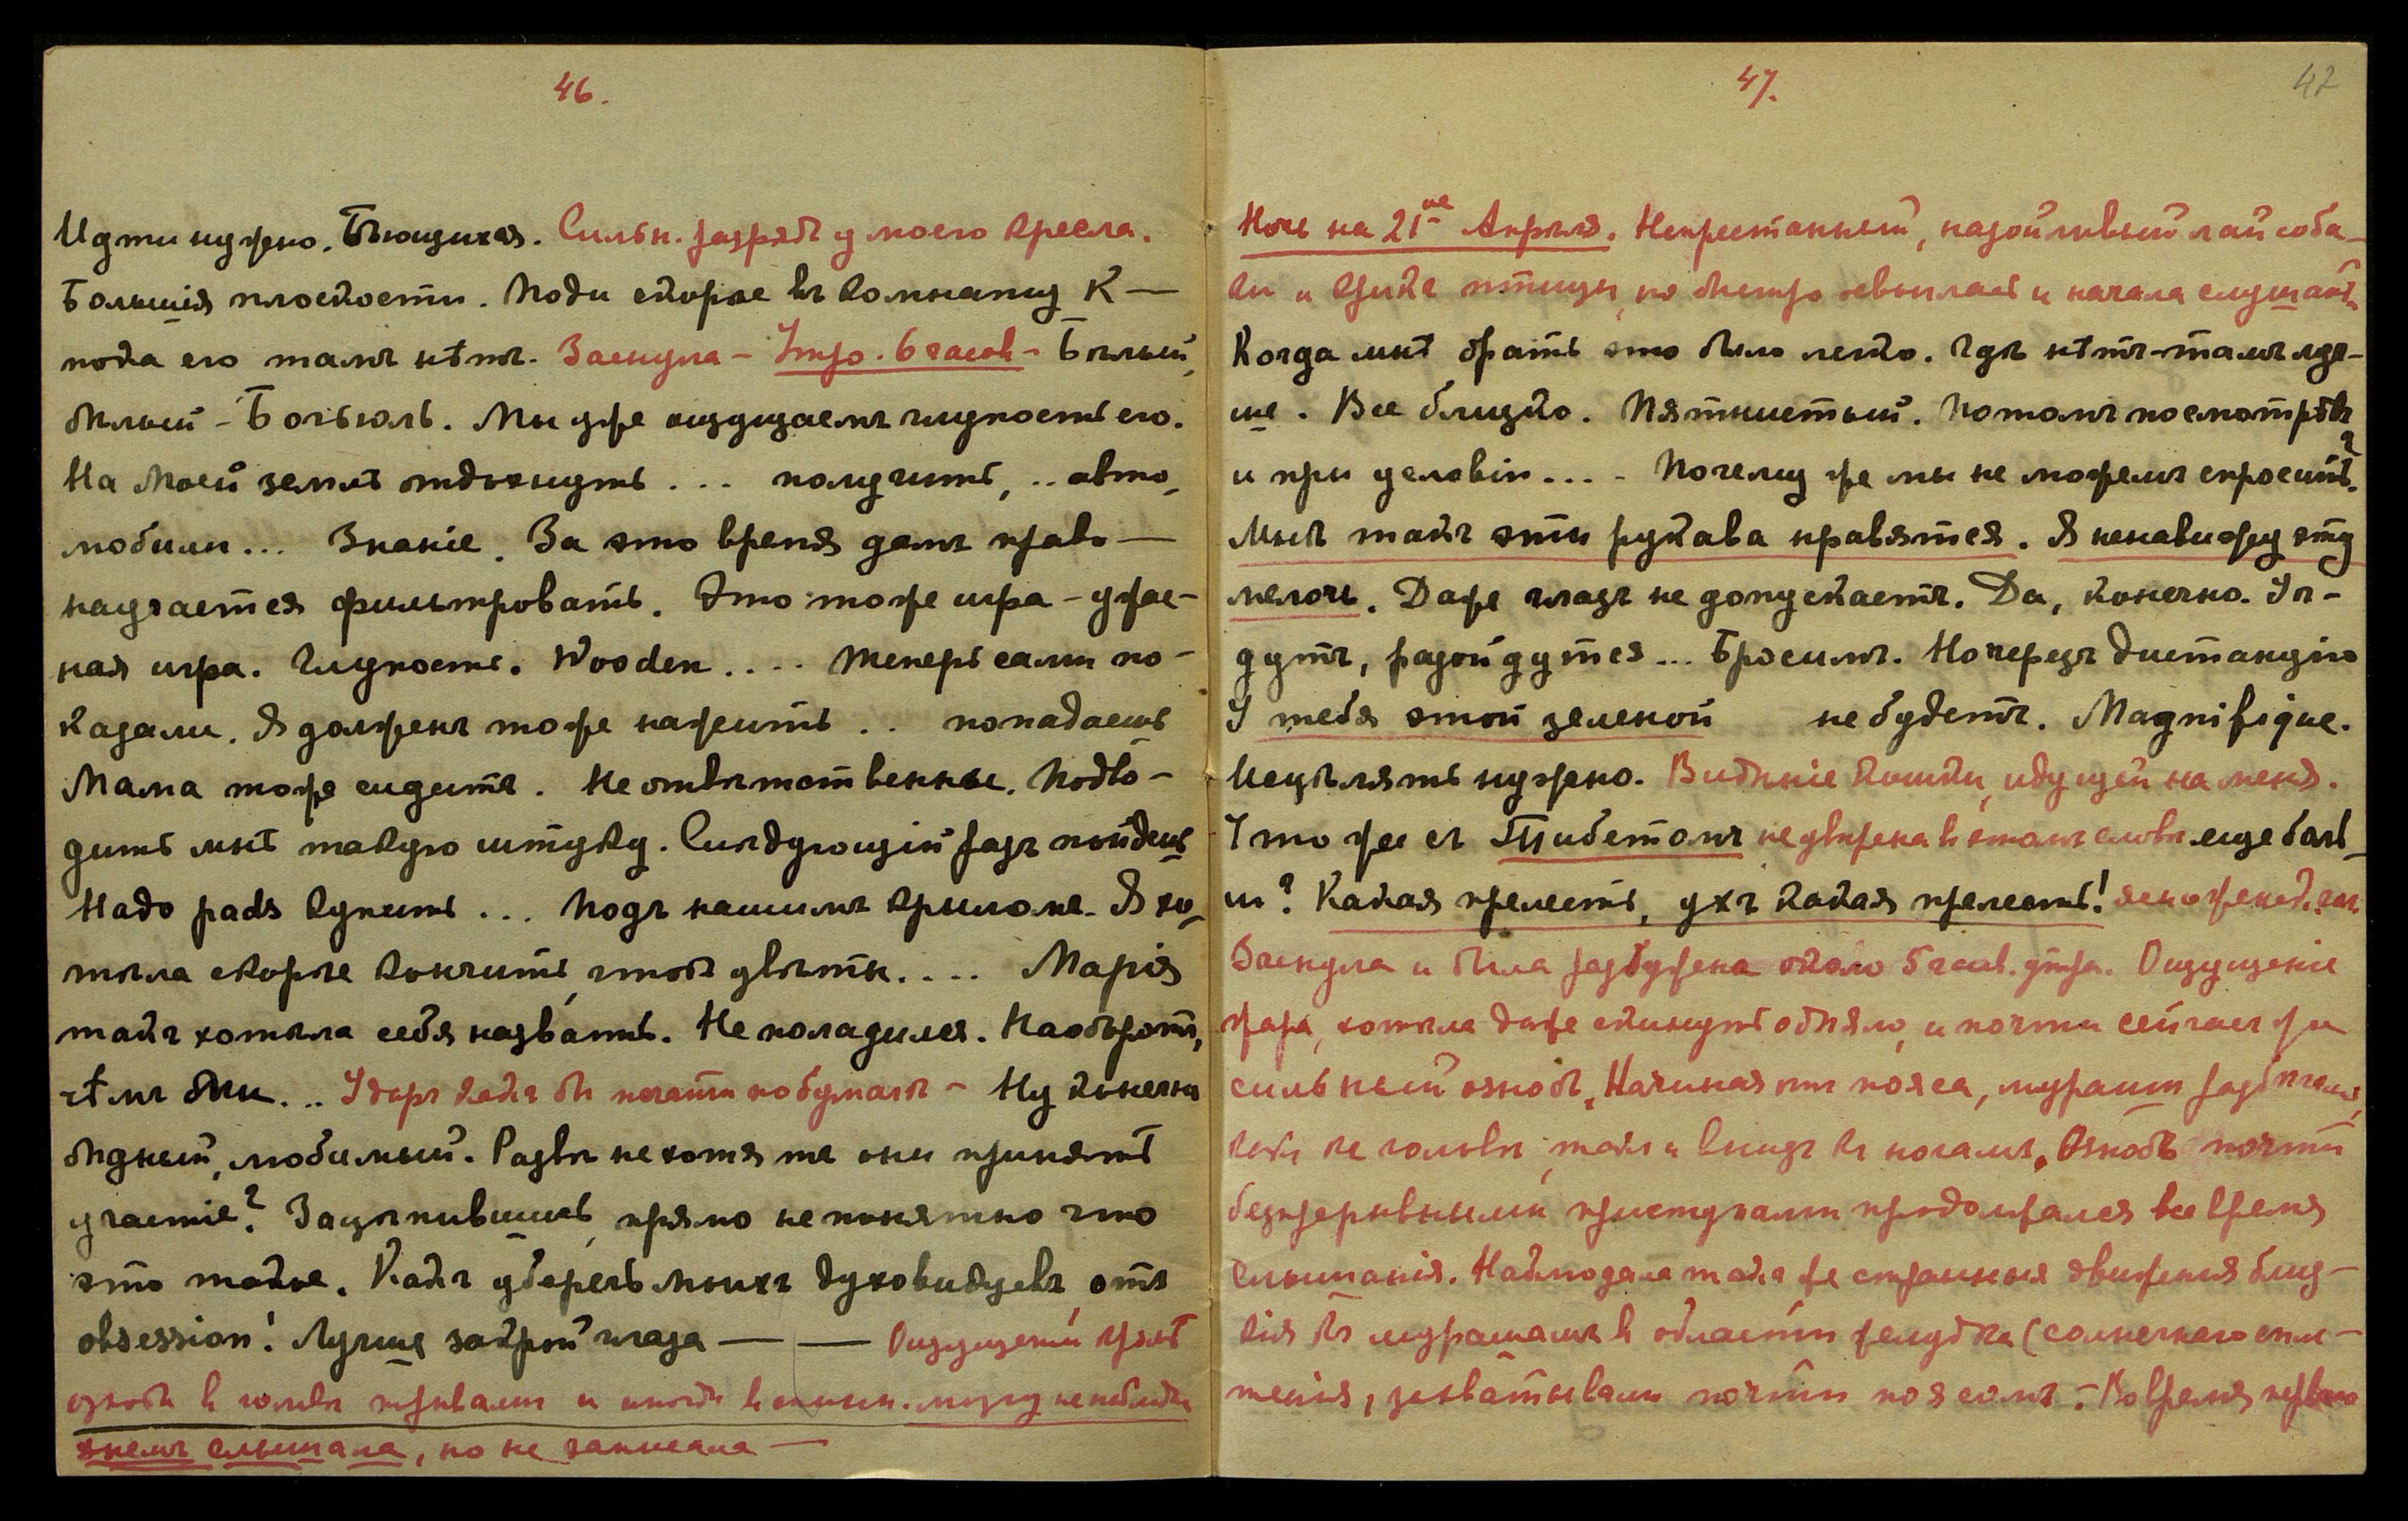 46.
Идти нужно. Бѣющихся. Сильн. разрядъ у моего кресла.
Большія плоскости. Поди скорѣе въ комнату К —
пока его тамъ нѣтъ. Заснула – Утро. 6 часов – Бѣлый,
бѣлый – Богъ. Мы уже ощущаемъ глупость его.
На моей землѣ отдохнуть ... получить, .. авто-
мобили... Знаніе. За это время дамъ право —
научается фильтровать. Это тоже игра – ужас-
ная игра. Глупость. Wooden .... Теперь сами по-
казали. Я долженъ тоже нажить .. попадаешь
Мама тоже сидитъ. Не отвѣтственны. Подво-
дить мнѣ такую штуку. Слѣдующій разъ пойдешь
Надо радя купить ... Подъ нашимъ крыломъ. Я хо-
тѣла скорѣе кончить, чтобъ цвѣты.... Марія
такъ хотѣла себя назвать. Не поладился. Наоборотъ,
чѣмъ бы... Ударъ какъ бы по бумагѣ – Ну конечно
бѣдный, любимый. Развѣ не хотятъ они принять
участіе? Зацѣпившись, прямо непонятно что
это такое. Какъ уберечь моихъ духовидцевъ отъ
obsession! Лучше закрой глаза — — Ощущеній кромѣ
озноба в головѣ и иногда в
слышала, но не записала —
47.
47
Ночь на 21ое Апрѣля. Непрестанный, назойливый лай соба-
ки и крикъ птицы, но быстро освоилась и начала слушать
Когда мнѣ брать это было легко. Гдѣ нѣтъ – тамъ луч-
ше. Все близко. Пятнистый. Потомъ посмотрѣвъ
и при условіи.... Почему же мы не можемъ спросить?
Мнѣ такъ эти рукава нравятся. Я ненавижу эту
мелочь. Даже глазъ не допускаетъ. Да, конечно. Уй-
дутъ, разойдутся... Бросилъ. Но черезъ дистанцію
У тебя этой зеленой не будетъ. Magnifique.
Исцѣлять нужно. Видѣніе кошки, идущей на меня.
Что же съ Тибетомъ не увѣрена в этомъ словѣ еще боль-
ш? Какая прелесть, ухъ какая прелесть!
Заснула и была разбужена около 5 часов. утра. Ощущеніе
жара, хотѣла даже скинуть одѣяло, и почти сейчасъ же
сильный ознобъ. Начиная отъ пояса, мурашки
какъ къ головѣ, такъ и внизъ къ ногамъ. Ознобъ почти
безпрерывными приступами продолжался все время
слышанія. Наблюдала также странныя движенія близ-
кія къ мурашкамъ в области желудка (солнечнаго спле-
тенія, захватывали почти поясомъ. Во время перваго